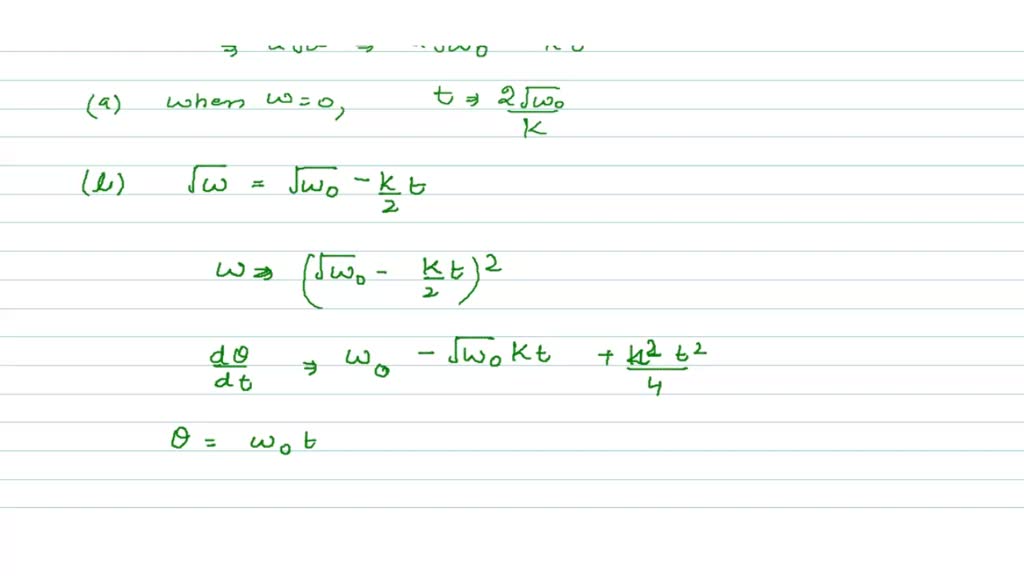 (a) when ω=0, t ⇒ 2√ω₀/K
(b) √ω = √ω₀ - K/2 t
ω ⇒ (√ω₀ - K/2 t)²
dθ/dt ⇒ ω₀ - √ω₀ Kt + K² t²/4
θ = ω₀ t